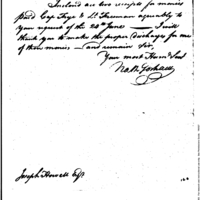 Inclosed are two receipts for monies
Paid Cap Frye & Lt Freeman agreeably to
your request of the 24th June — I will
thank you to make the proper discharges for me
of those monies — and remain Sir,
Your most Hum Ser
Nath Gorham
Joseph Howell Esq